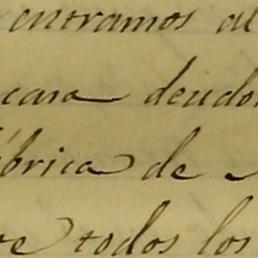 entramos al
cara deudo
ábrica de
te todos los